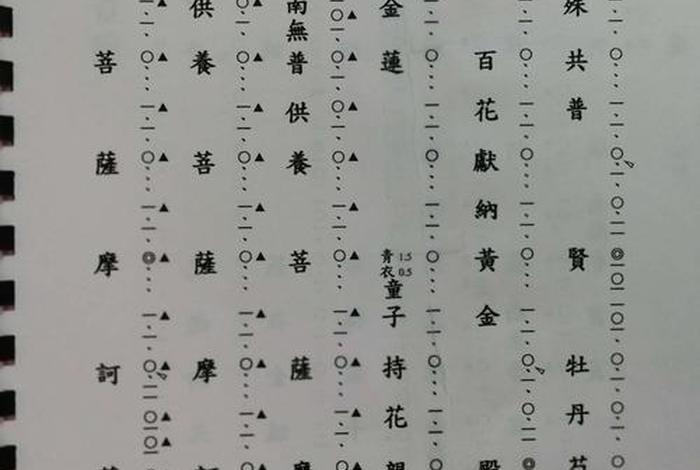 殊共普賢牡丹芍
百花獻納黃金殿
金蓮青衣童子持花
1.5
0.5
南無普供養菩薩摩
供養菩薩摩訶
菩薩摩訶